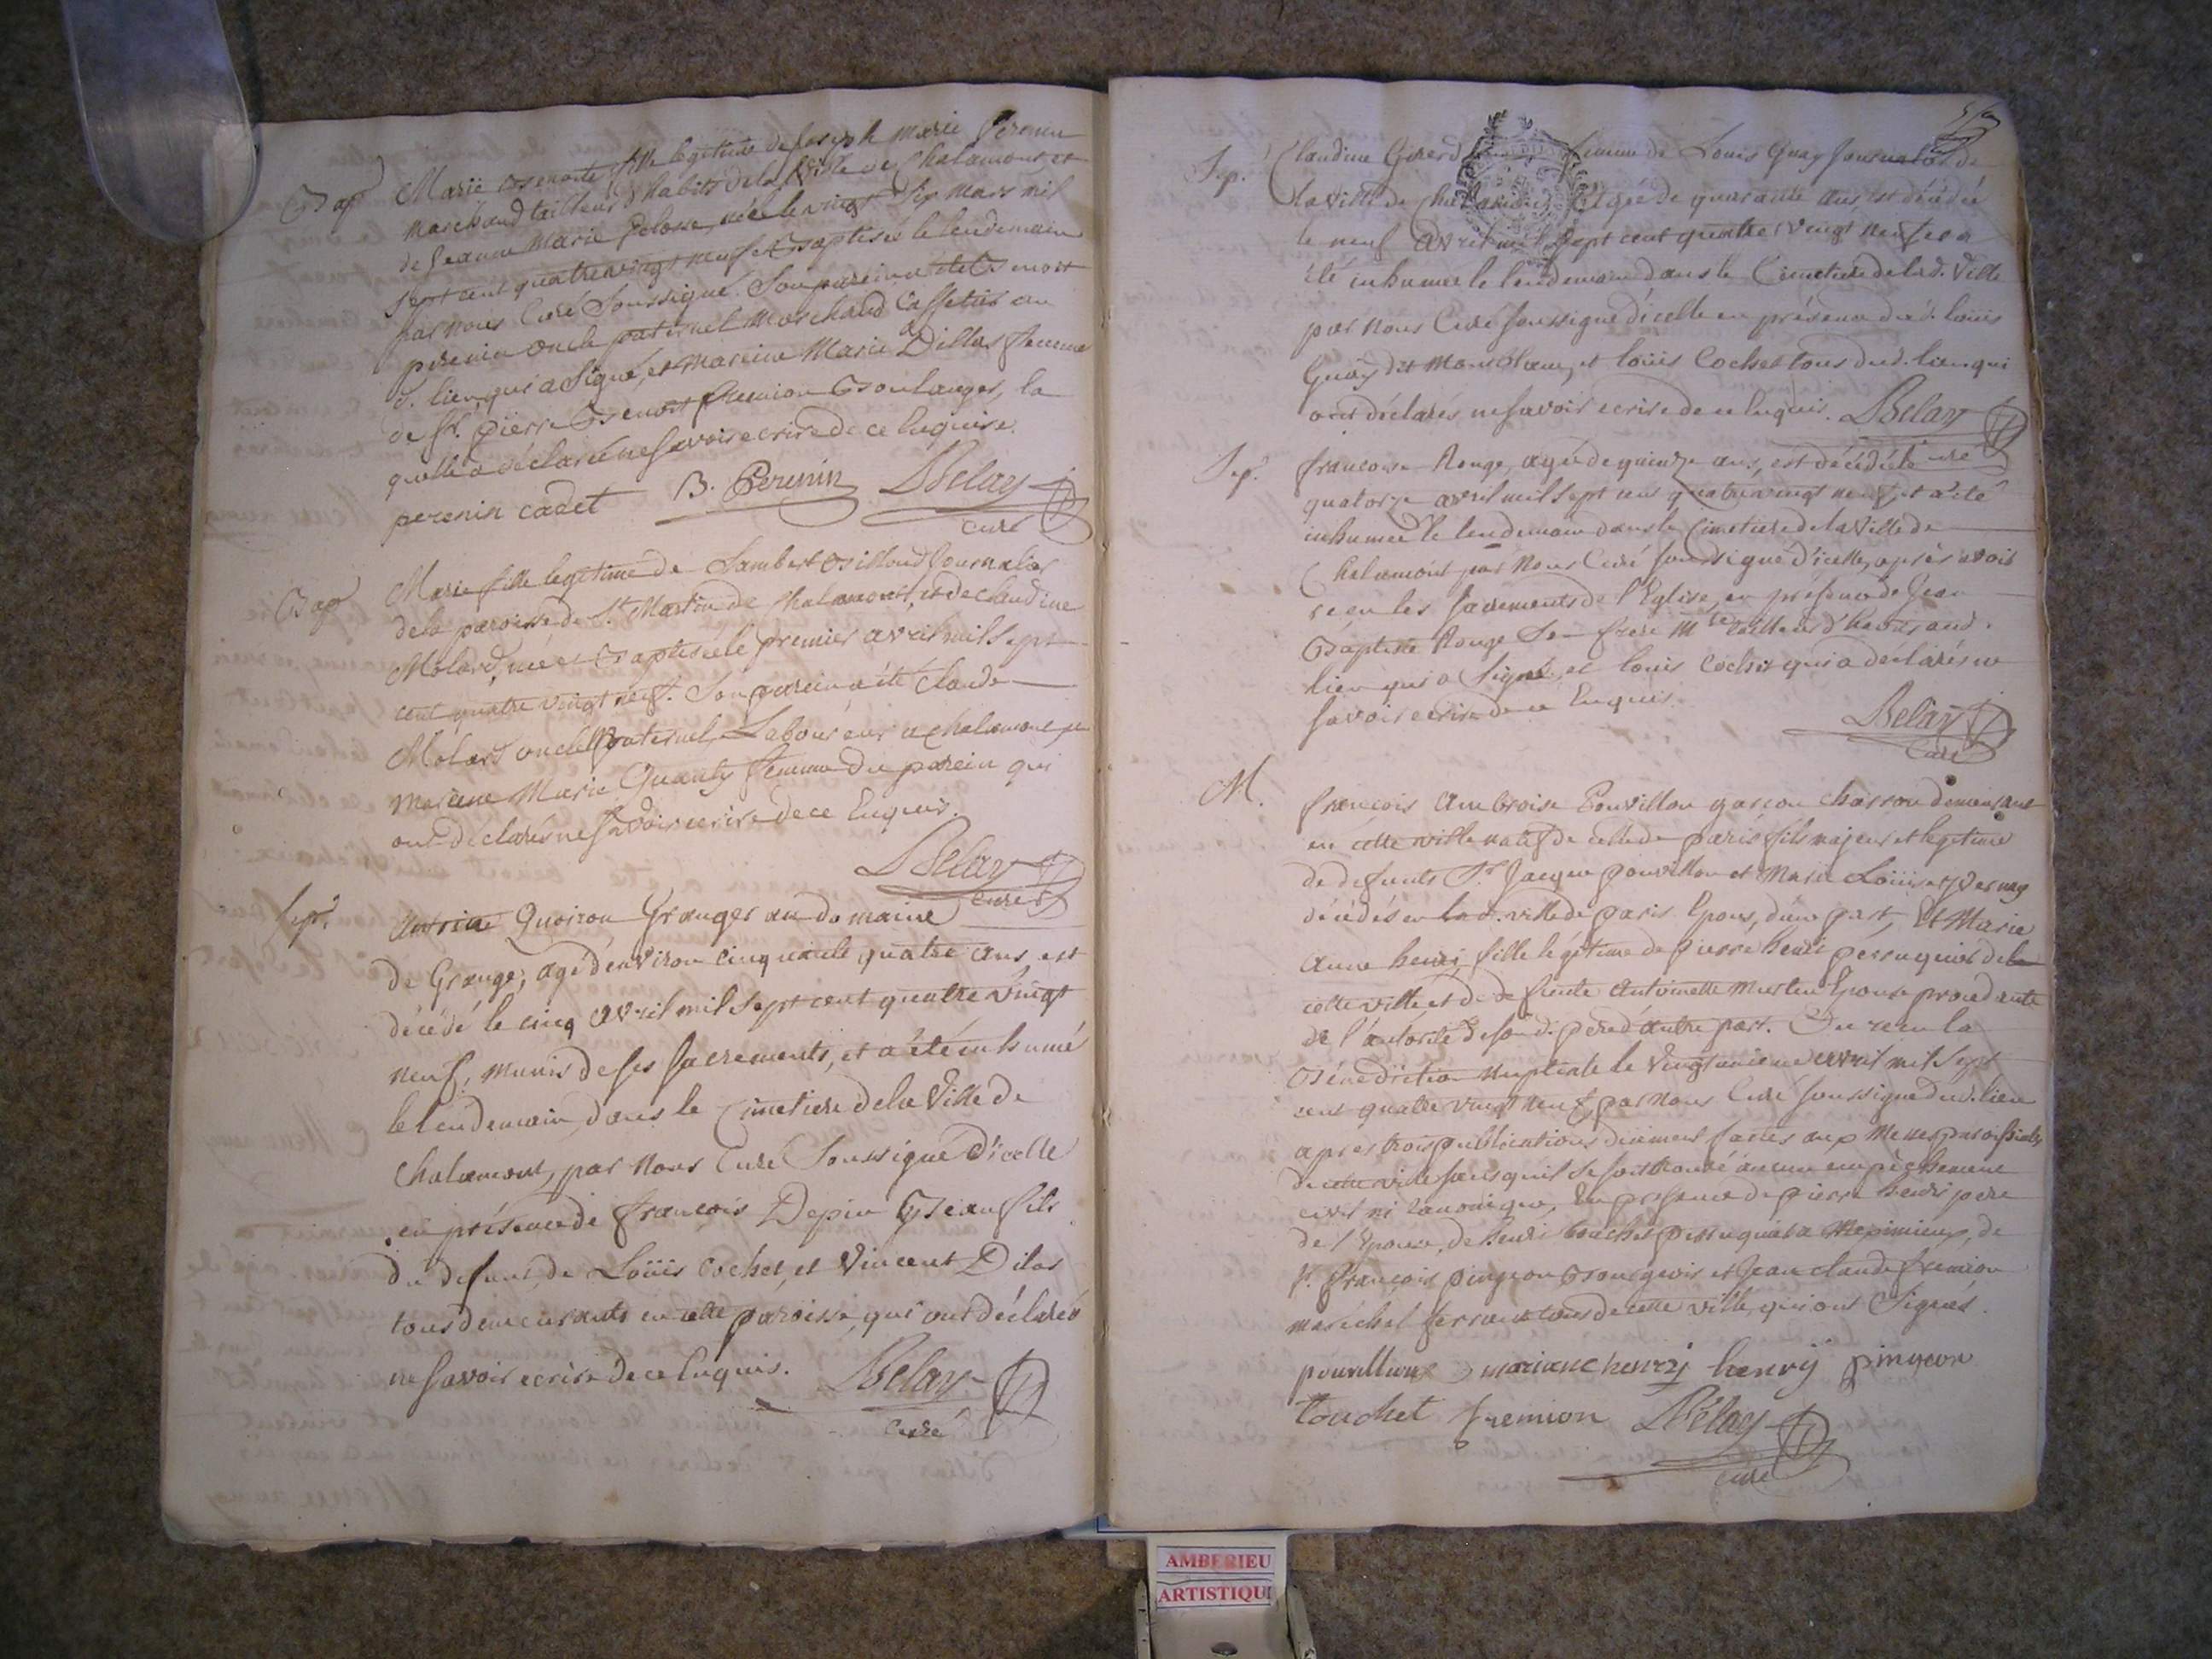 Bap.
Marie Benoite fille legitime de Joseph Marie Perenin
marchand tailleur d'habits de la ville de Chalamont, et
de Jeanne Marie Pelosse, née le vingt six mars mil
sept cent quatre vingt neuf et Baptisée le lendemain
par nous Curé soussigné. Son parein a été Benoit
perenin oncle paternel marchand Caffetier au
d. lieu, qui a signé, et mareine Marie Dillas femme
de Sr. pierre Benoit fremion Boulanger, la
quelle a déclaré ne savoir ecrire de ce Enquise.
perenin cadet B. Perenin LBelay
curé
Bap
Marie fille legitime de Lambert Billoud Journalier
de la paroisse de St. Martin de Chalamont, et de claudine
Molard, née et Baptisée le premier avril mil sept
cent quatre vingt neuf. Son parein a été Claude
Molard oncle maternel, Laboureur a chalamont, et
mareine Marie Quanty femme du parein qui
ont déclarés ne savoir ecrire de ce Enquis.
LBelay
curé
Sep.
Antoine Quoiron Granger au domaine
de Grange, agé d'environ cinquante quatre ans, est
décédé le cinq avril mil sept cent quatre vingt
neuf, munis de ses sacrements, et a été inhumé
le lendemain, dans le Cimetiere de la Ville de
Chalamont, par nous Curé soussigné d'icelle
en présence de françois Depin, Jean fils
du defunt, de Loüis Cochet, et Vincent Dilas
tous demeurants en cette paroisse, qui ont déclarés
ne savoir ecrire de ce Enquis. LBelay
curé
Sep.
Claudine Girerd femme de Louis Guay Journalier de
la ville de Chalamont, agée de quarante ans, est décédée
le neuf avril mil sept cent quatre vingt neuf et a
été inhumée le lendemain dans le Cimetiere de lad. Ville
par nous Curé soussigné d'icelle en présence dud. Loüis
Guay dit et loüis Cochet tous dud. lieu qui
ont déclarés ne savoir ecrire de ce Enquis. LBelay
curé
Sep.
francoise Rouge, agée de quinze ans, est décédée le
quatorze avril mil sept cent quatre vingt neuf, et a été
inhumée le lendemain dans le Cimetiere de la Ville de
Chalamont par nous Curé soussigné d'icelle, après avoir
recu les sacrements de l'Eglise, en présence de Jean
Baptiste Rouge Son frere Mtre tailleur d'habits aud.
lieu qui a signé, et louis Cochet qui a déclaré ne
savoir ecrire de ce Enquis.
LBelay
Curé
M.
françois ambroise Pouvillon garçon charron demeurant
en cette ville natif de celle de paris fils majeur et legitime
de defunts Sr. Jacque pouvillon et Marie Loüise
décédés en lad. ville de paris Epoux, d'une part, Et Marie
anne henri, fille légitime de pierre henri perruquier de
cette ville, et de defunte Antoinette Epouse procedante
de l'autorité de son d. pere d'autre part. On recu la
Bénédiction nuptiale le vingt avril mil sept
cent quatre vingt neuf, par nous Curé soussigné dud. lieu
apres trois publications duement faites aux Messes paroissiales
de cette ville sans qu'il se soit trouvé aucun empêchement
civil ni canonique, En présence de pierre henri pere
de l'Epouse, de henri touchet perruquier a Meximieux, de
Sr. françois pingeon Bourgeois et Jean claude fremion
maréchal ferrant tous de cette ville, qui ont Signés.
pouvillion marianne henrij henrij pingeon
touchet fremion LBelay
curé
AMBERIEU
ARTISTIQU